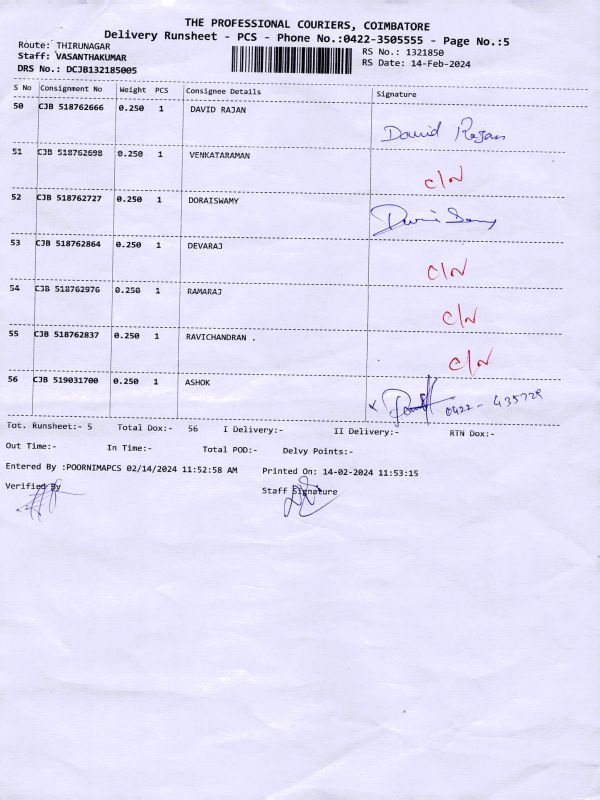 THE PROFESSIONAL COURIERS, COIMBATORE
Delivery Runsheet - PCS - Phone No.:0422-3505555 - Page No.:5
Route: THIRUNAGAR
RS No.: 1321850
Staff: VASANTHAKUMAR
RS Date: 14-Feb-2024
DRS No.: DCJB132185005
S No Consignment No Weight PCS Consignee Details Signature
50 CJB 518762666 0.250 1 DAVID RAJAN
David Rajan
51 CJB 518762698 0.250 1 VENKATARAMAN
C/N
52 CJB 518762727 0.250 1 DORAISWAMY
53 CJB 518762864 0.250 1 DEVARAJ
C/N
54 CJB 518762976 0.250 1 RAMARAJ
C/N
55 CJB 518762837 0.250 1 RAVICHANDRAN .
C/N
56 CJB 519031700 0.250 1 ASHOK
0422 - 435729
Tot. Runsheet:- 5 Total Dox:- 56 I Delivery:- II Delivery:- RTN Dox:-
Out Time:- In Time:- Total POD:- Delvy Points:-
Entered By :POORNIMAPCS 02/14/2024 11:52:58 AM Printed On: 14-02-2024 11:53:15
Verified By Staff Signature